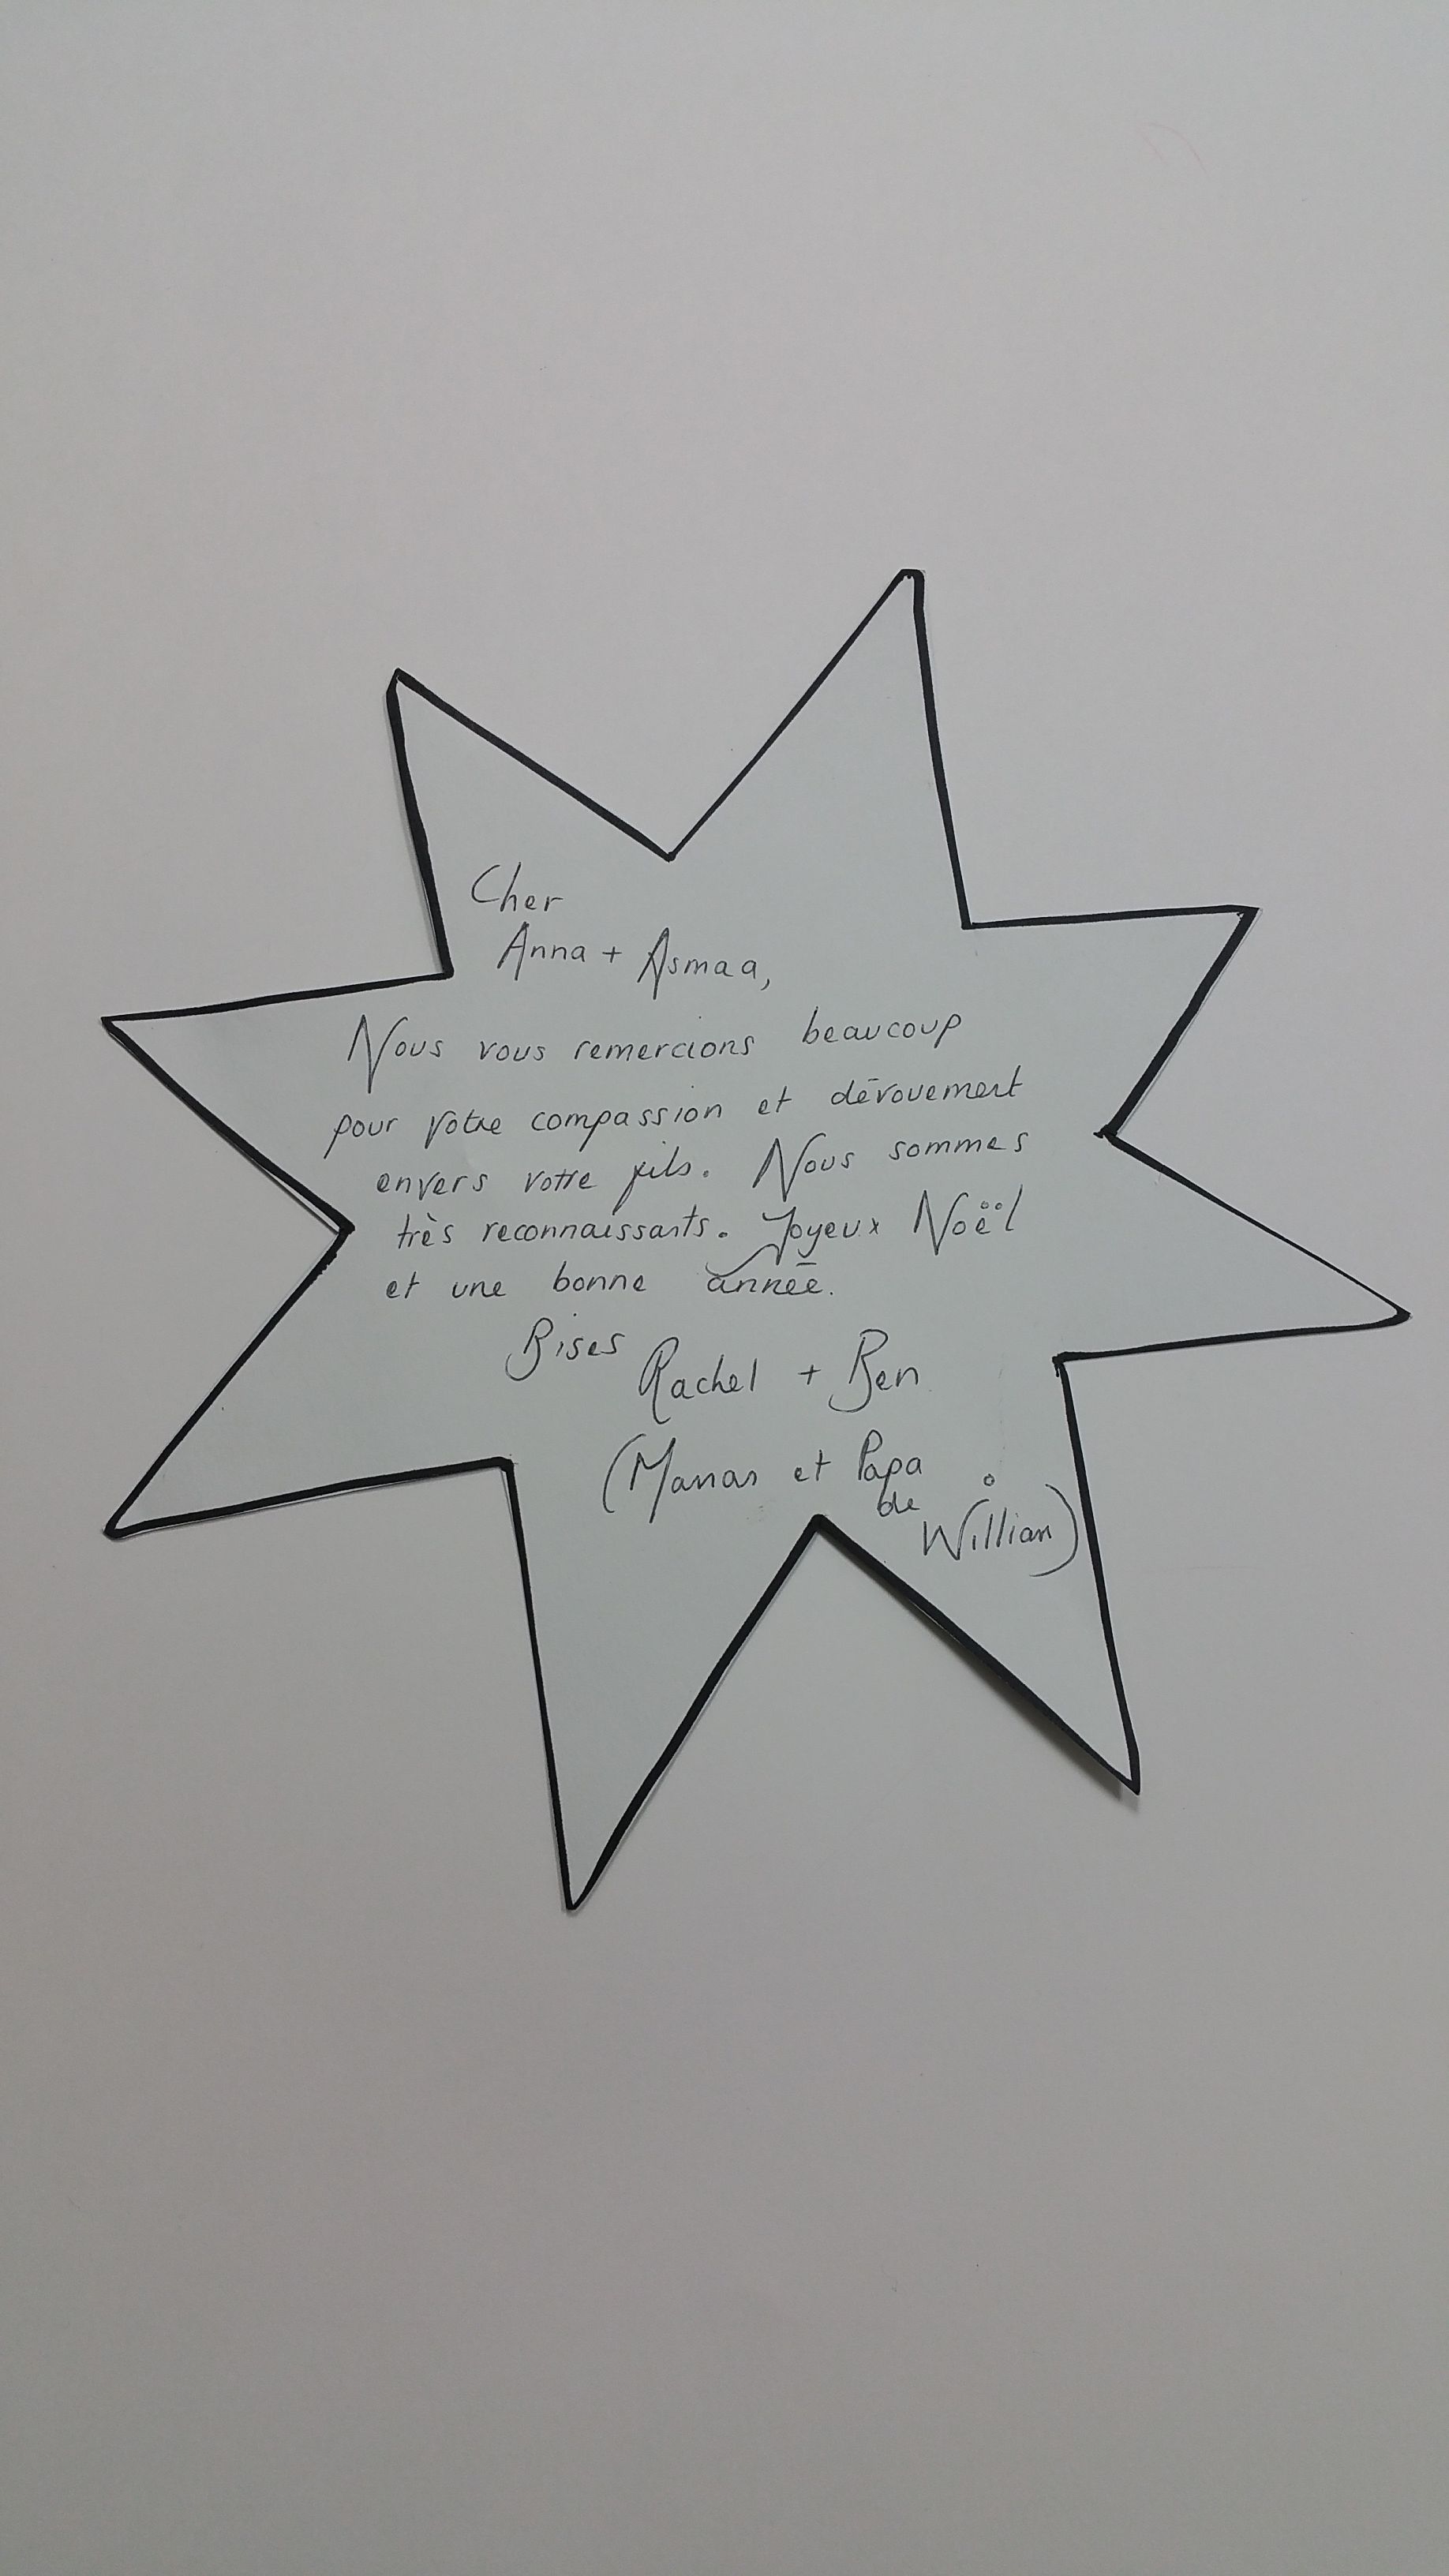 Cher
Anna + Asmaa,
Nous vous remercions beaucoup
pour votre compassion et dévouement
envers votre fils. Nous sommes
très reconnaissants. Joyeux Noël
et une bonne année.
Bises
Rachel + Ben
(Maman et Papa
de
William)